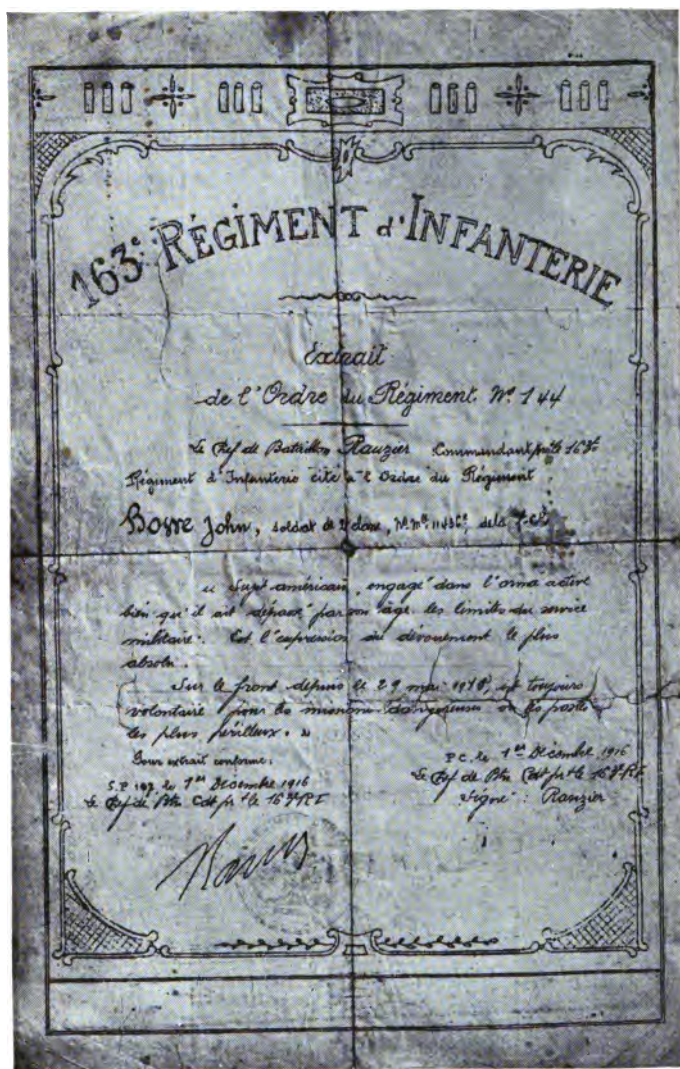 163e RÉGIMENT d'INFANTERIE
Extrait
de l'Ordre du Régiment. No. 144
Le Chef de Bataillon Rauzier Commandant p.i. le 163e
Régiment d'Infanterie cite à l'Ordre du Régiment
John, soldat de 2e classe, No. Mle 11436, de la Cie
« Sujet américain, engagé dans l'arme active
bien qu'il ait dépassé par son âge les limites du service
militaire. Est l'expression du dévouement le plus
absolu.
Sur le front depuis le 29 mai est toujours
volontaire pour les missions dangereuses ou les postes
les plus périlleux. »
Pour extrait conforme:
S.P. 197. le 1er Décembre 1916
Le Chef de Btn Cdt le 163e R.I
P.C. le 1er Décembre 1916
Le Chef de Btn Cdt le 163e R.I
Signé : Rauzier